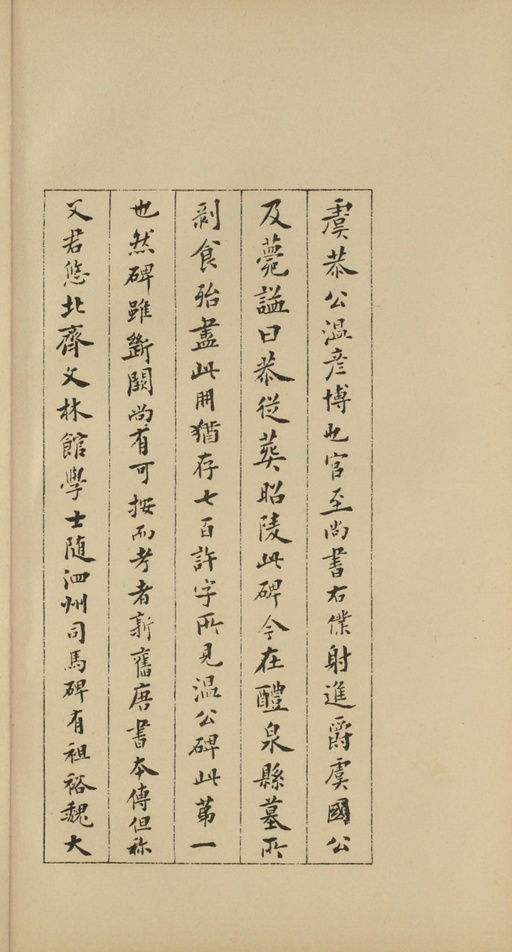 虞恭公溫彥博也官至尚書右僕射進爵虞國公
及薨謚曰恭從葬昭陵此碑今在醴泉縣墓所
剥食殆盡此冊猶存七百許字所見溫公碑此第一
也然碑雖斷闕尚有可按而考者新舊唐書本傳但称
父君悠北齊文林館學士随泗州司馬碑有祖裕魏大